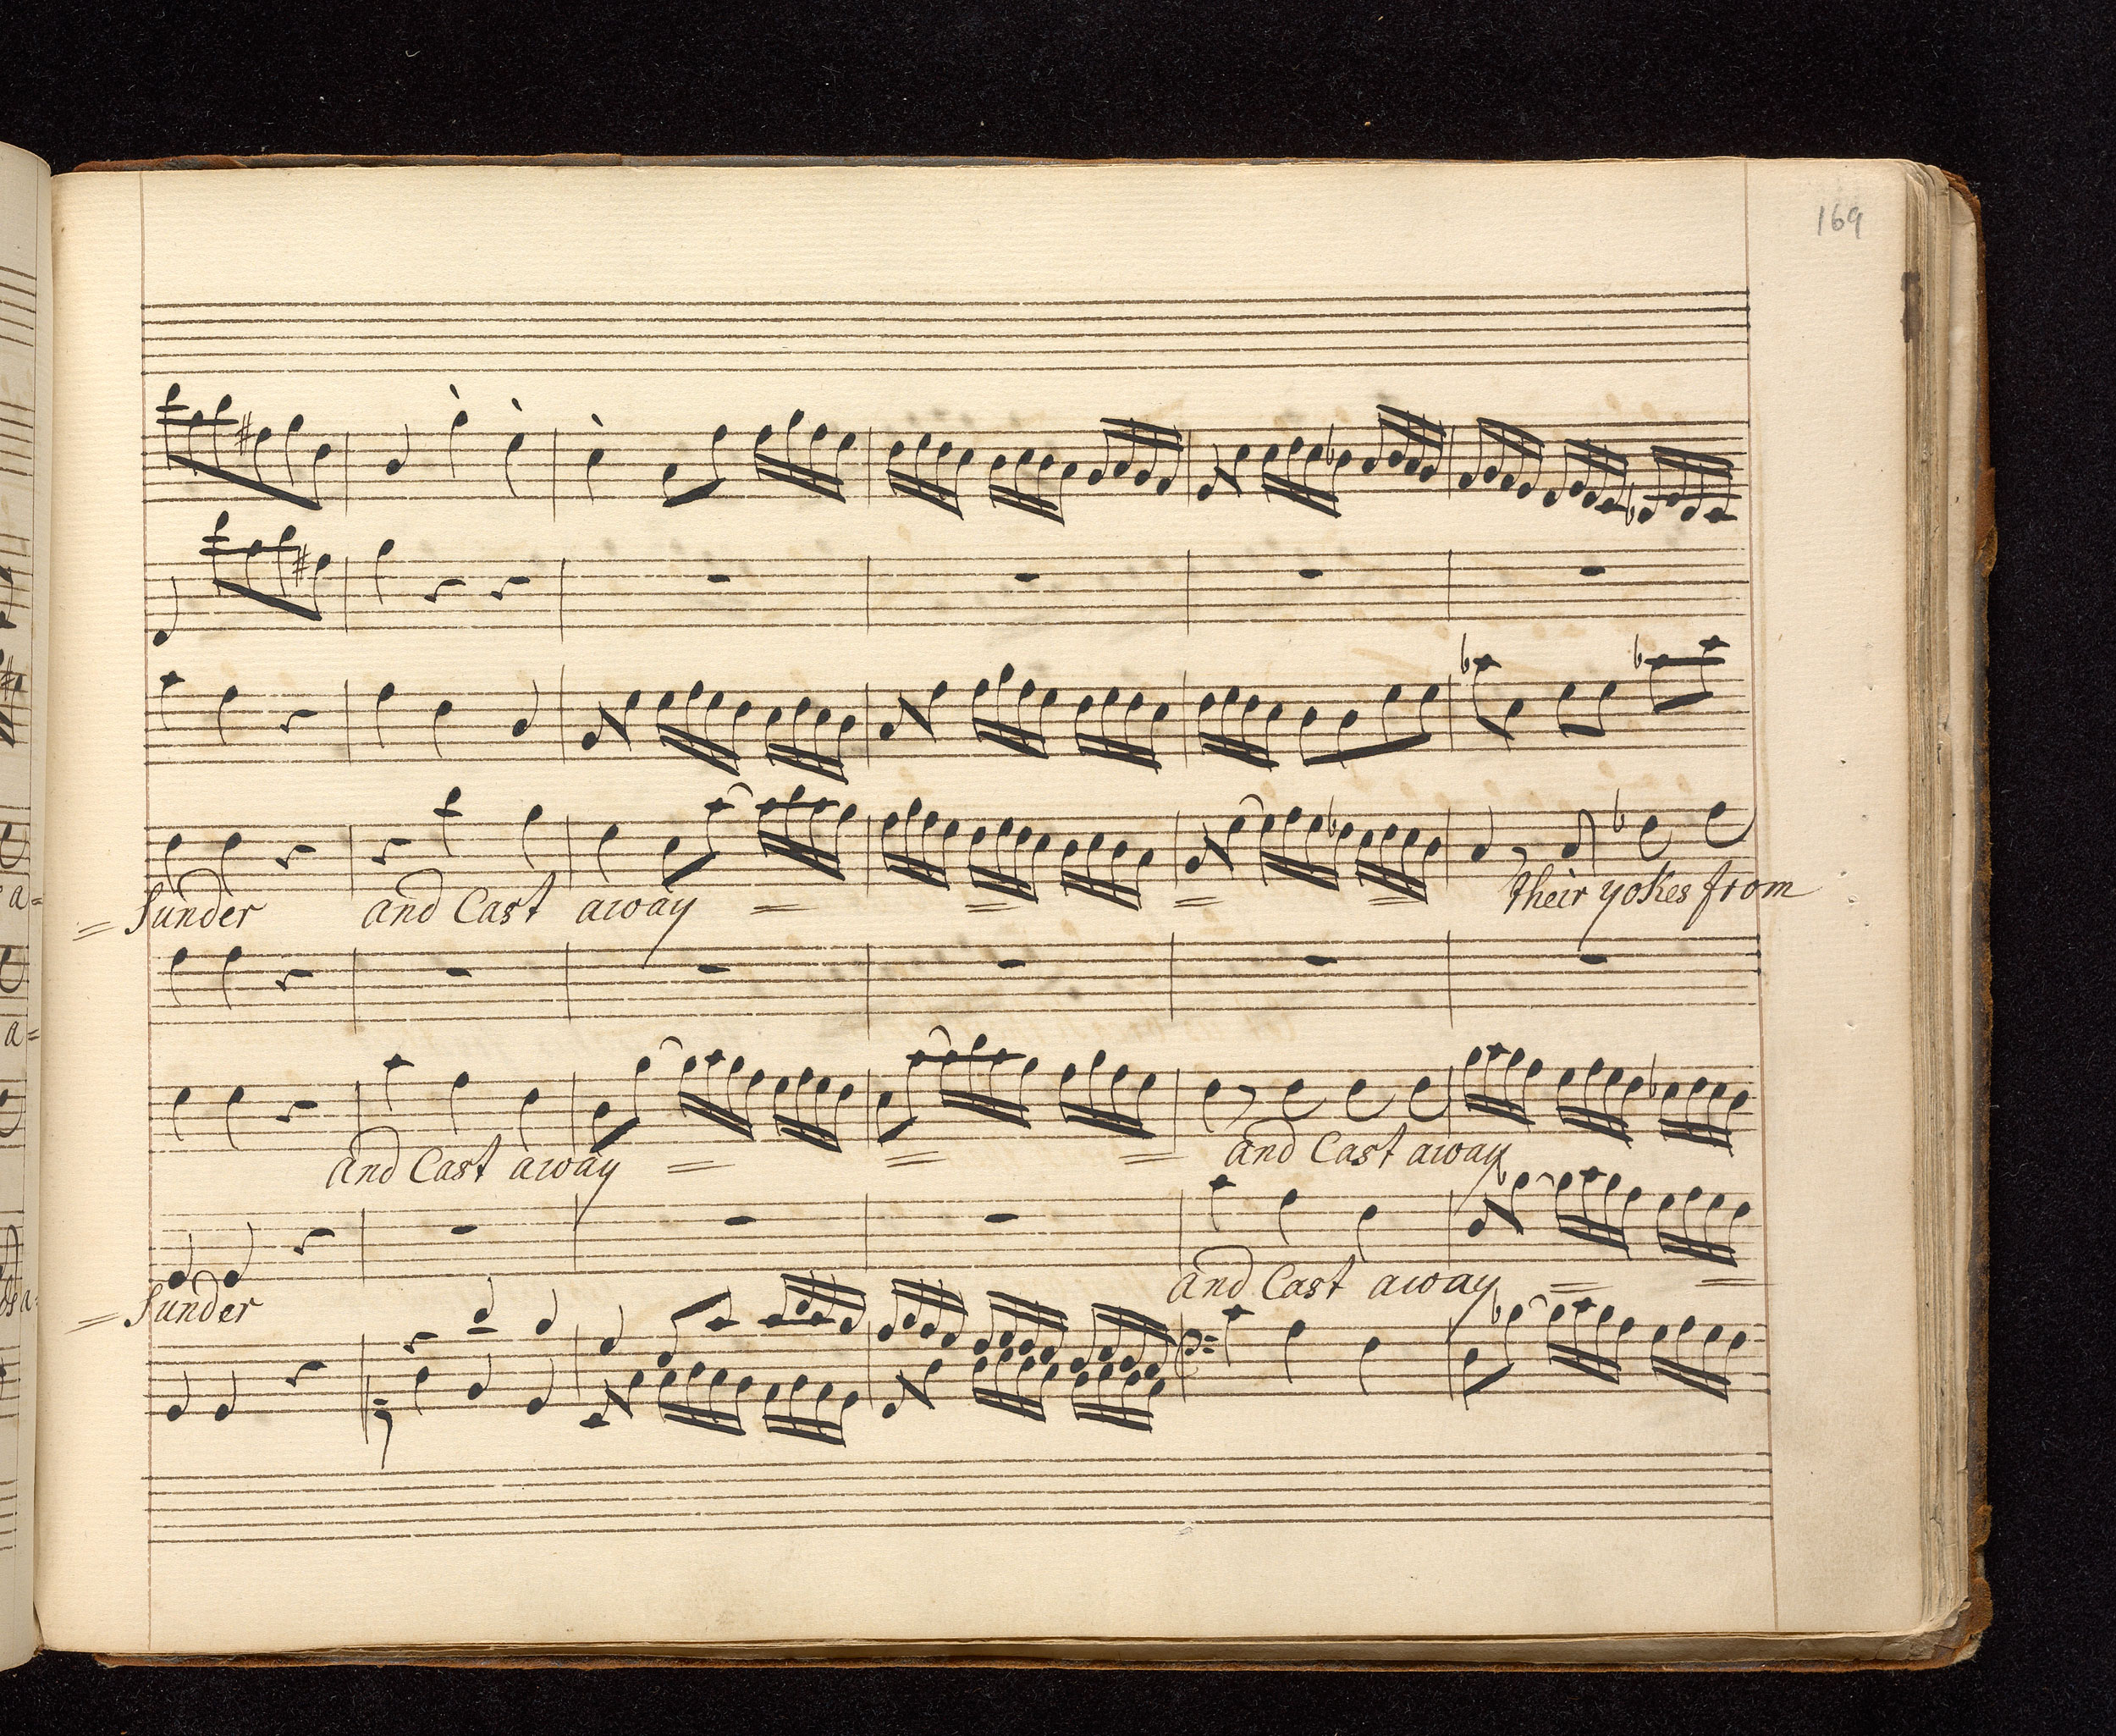 169
a=
= Sunder and Cast away = = = = their yokes from
a=
and Cast away = = = and Cast away
= Sunder and Cast away = =